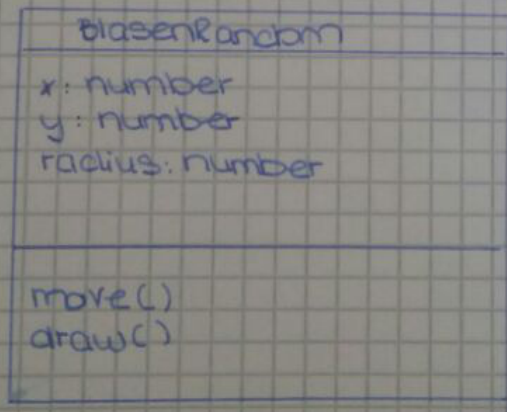 BlasenRandom
x: number
y: number
radius: number
move()
draw()